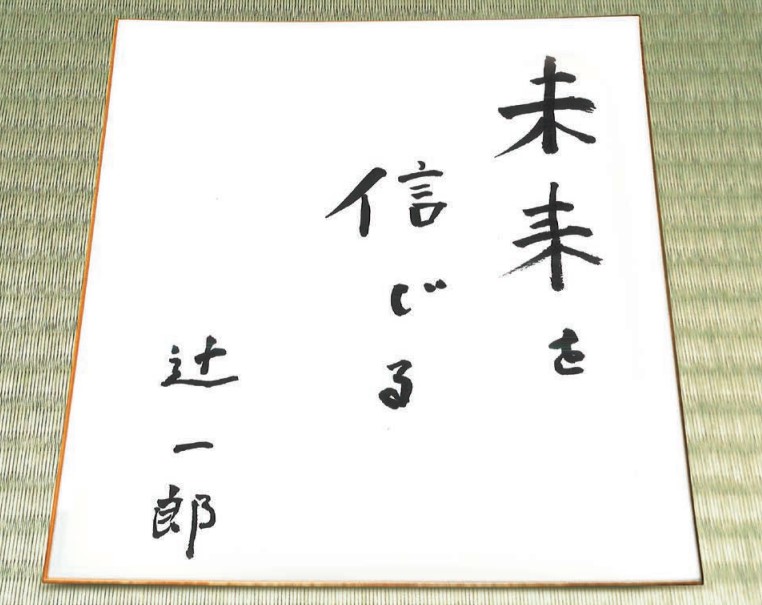 未来を
信じる
辻一郎